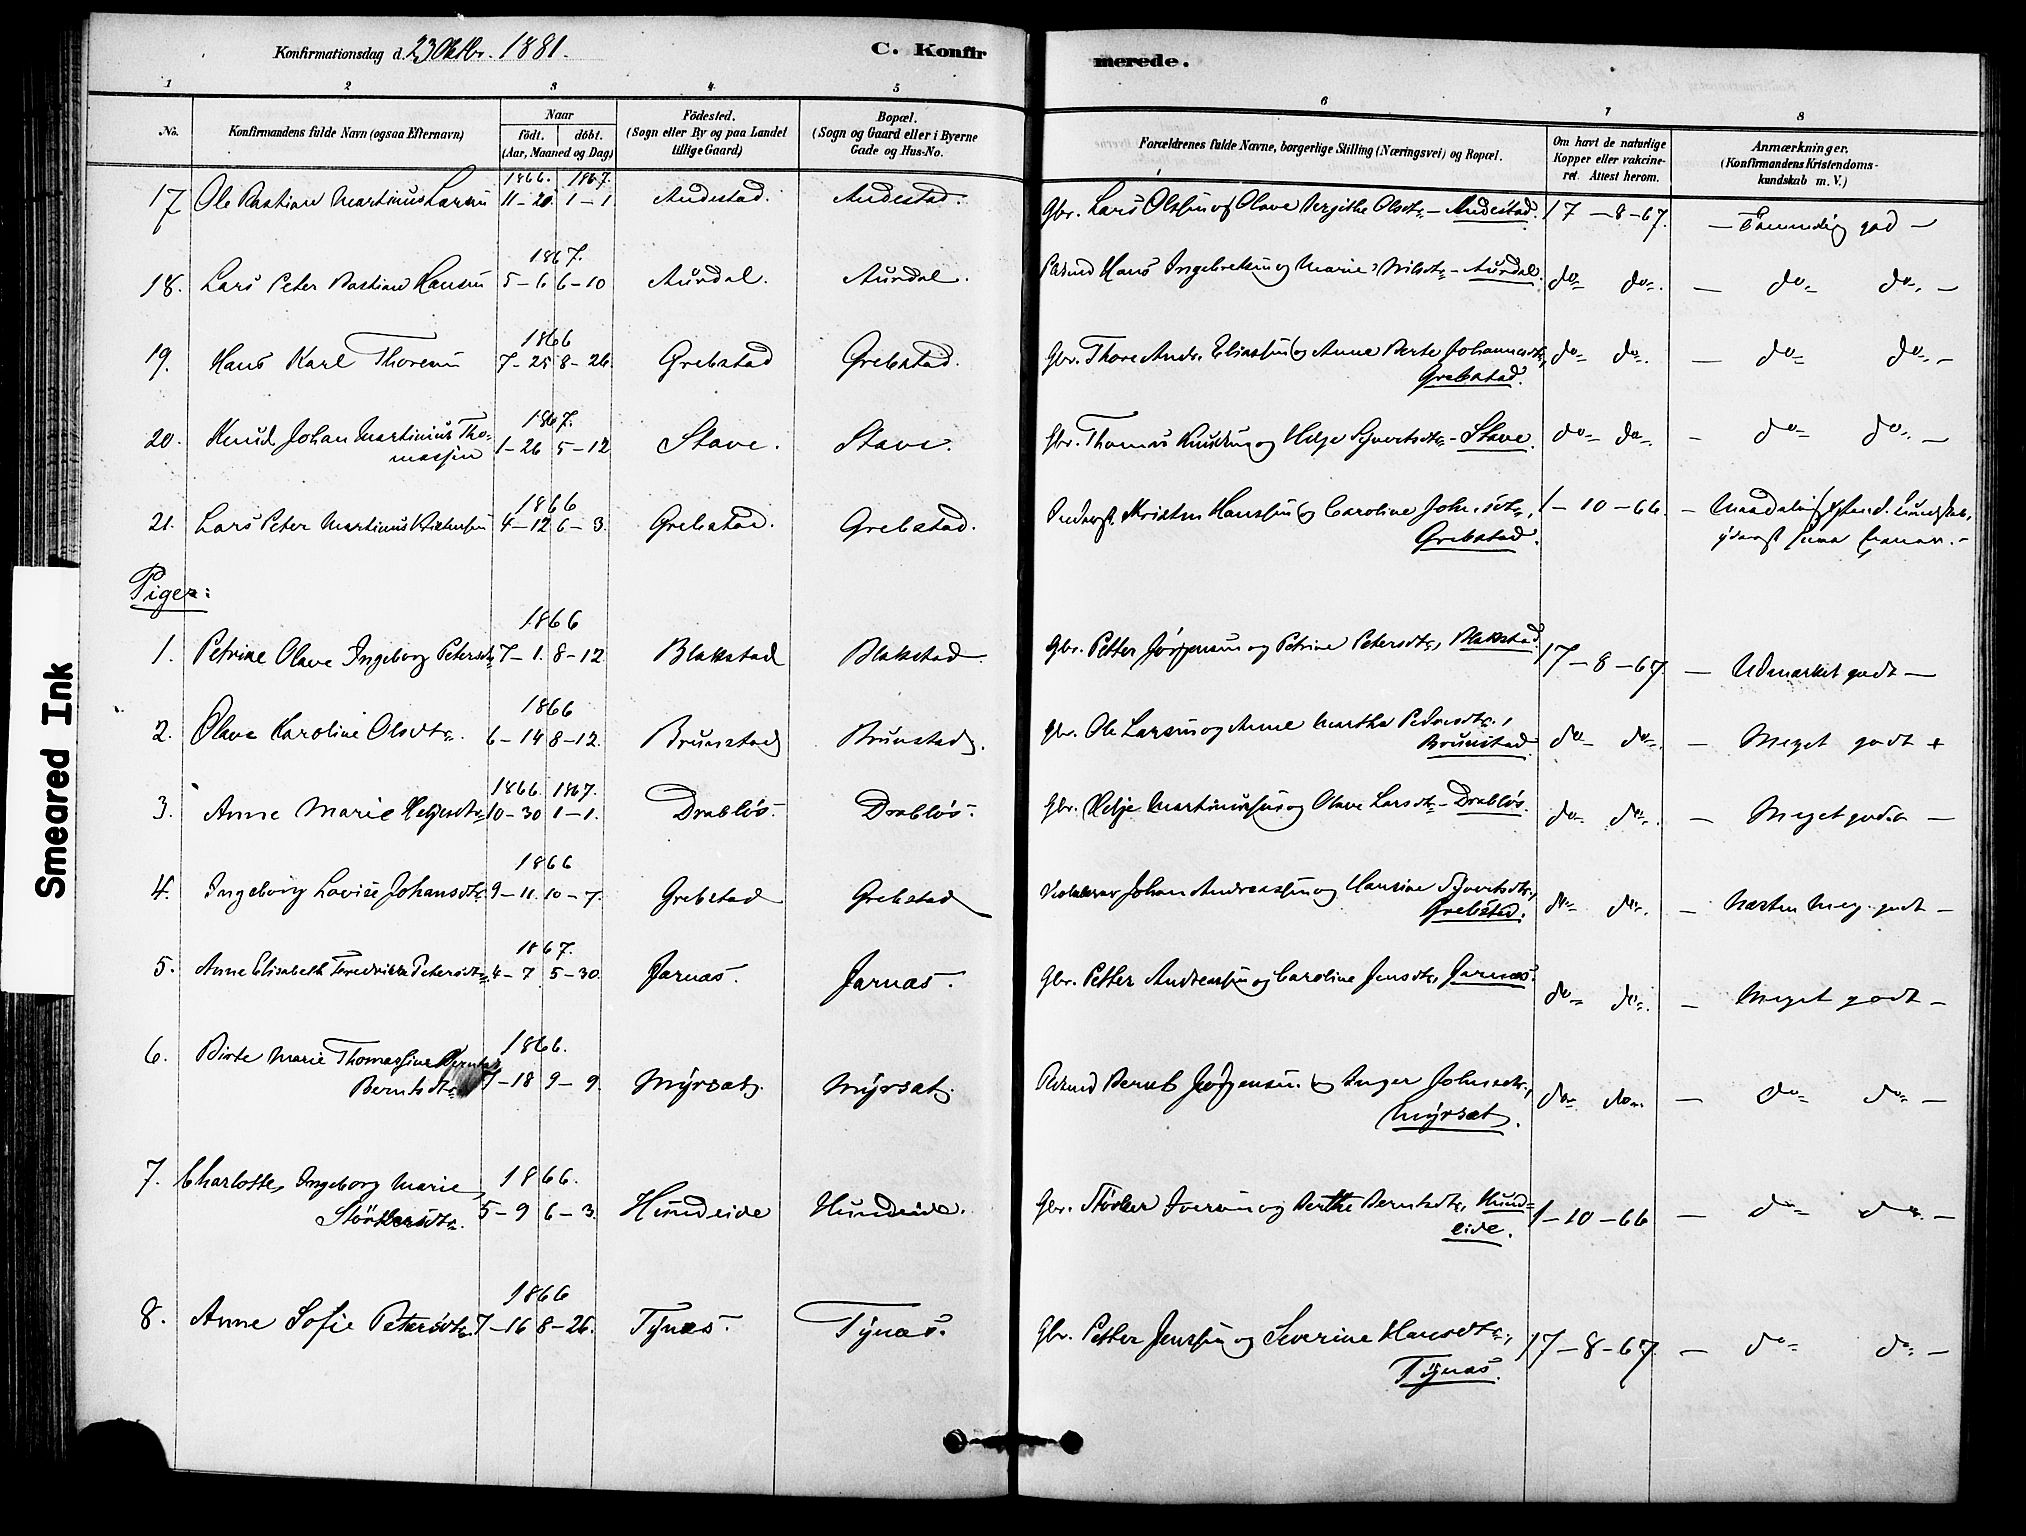 Konfirmationsdag d. 23 Oktbr. 1881.
C. Konfir
merede.
1 2 3 4 5 6 7 8
No.
Konfirmandens fulde Navn (ogsaa Efternavn)
Naar
födt. döbt.
(Aar, Maaned og Dag)
Födested.
(Sogn eller By og paa Landet
tillige Gaard)
Bopæl.
(Sogn og Gaard eller i Byerne
Gade og Hus-No.
Forældrenes fulde Navne, borgerlige Stilling (Næringsvei) og Bopæl.
Om havt de naturlige
Kopper eller vakcine-
ret. Attest herom.
Anmærkninger.
(Konfirmandens Kristendoms-
kundskab m. V.)
1866. 1867.
17 Ole Bastian Martinus Larsen 11-20 1-1 Andestad. Andestad. Gbr. Lars Olsen og Olave Bergithe Olsdtr. - Andestad. 17-8-67. - Temmelig god -
1867.
18. Lars Peter Bastian Hansen 5-6 6-10 Aurdal. Aurdal. Hans Ingebretsen og Marie Nilsdtr. - Aurdal. do. do. - do. do. -
1866
19. Hans Karl Thoresen 7-25 8-26. Grebstad Grebstad. Gbr. Thore Andr. Eliassen og Anne Berte Johannesdtr., do. do. - do. do. -
Grebstad.
1867.
20. Knud Johan Martinius Tho- 1-26 5-12 Stave. Stave. Gbr. Thomas Knudsen og Helje Syvertsdtr. - Stave. do. do. - do. do. -
massen
1866
21. Lars Peter Martinus Kristensen 4-12 6-3. Grebstad. Grebstad. Kristen Hanssen og Caroline Johnsdtr., 1-10-66. -
Grebstad.
Piger:
1866
1. Petrine Olave Ingeborg Petersdtr. 7-1. 8-12 Blakstad Blakstad. Gbr. Petter Jörgensen og Petrine Petersdtr., Blakstad. 17-8-67. - Udmærket godt -
1866
2. Olave Karoline Olsdtr. 6-14 8-12. Brunstad Brunstad. Gbr. Ole Larsen og Anne Martha Pedersdtr., do. do. - Meget godt +
Brunstad.
1866. 1867.
3. Anne Marie Heljesdtr. 10-30 1-1. Drablös. Drablös. Gbr. Helje Martinussen og Olave Larsdtr. - Drablös. do. do. - Meget godt -
1866
4. Ingeborg Lovise Johansdtr. 9-11. 10-7. Grebstad Grebstad Johan Andreassen og Hansine Syvertsdtr., do. do. - Næsten meg. godt -
Grebstad.
1867.
5. Anne Elisabeth Fredrikke Petersdtr. 4-7 5-30. Jarnæs. Jarnæs. Gbr. Petter Andreassen og Caroline Jensdtr., Jarnæs. do. do. - Meget godt -
1866.
6. Birte Marie Thomassine
Berntsdtr. 7-18 9-9. Myrsæt. Myrsæt. Bernt Jörgensen og Inger Johnsdtr., do. do. - do. do. -
Myrsæt.
7. Charlotte, Ingeborg Marie, 1866.
Störkersdtr. 5-9 6-3. Hundeide Hundeide. Gbr. Störker Iversen og Berthe Berntsdtr., Hund- 1-10-66 - do. do. -
eide.
1866
8. Anne Sofie Petersdtr. 7-16 8-26. Tynæs. Tynæs. Gbr. Petter Jenssen og Severine Hansdtr., 17-8-67. - do. do. -
Tynæs.
Smeared Ink